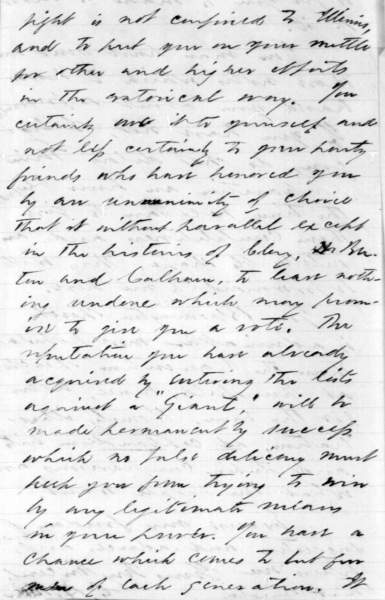 fight is not confined to Illinois,
and to put you on your mettle
for other and higher efforts
in the oratorical way. You
certainly owe it to yourself and
not less certainly to your party
friends who have honored you
by an unanimity of choice
that is without parallel except
in the histories of Clay, Ben-
ton and Calhoun, to leave noth-
ing undone which may prom-
ise to give you a vote. The
reputation you have already
acquired by entering the lists
against a "Giant," will be
made permanent by success
which no false delicacy must
keep you from trying to win
by any legitimate means
in your power. You have a
chance which comes to but few
men of each generation. It